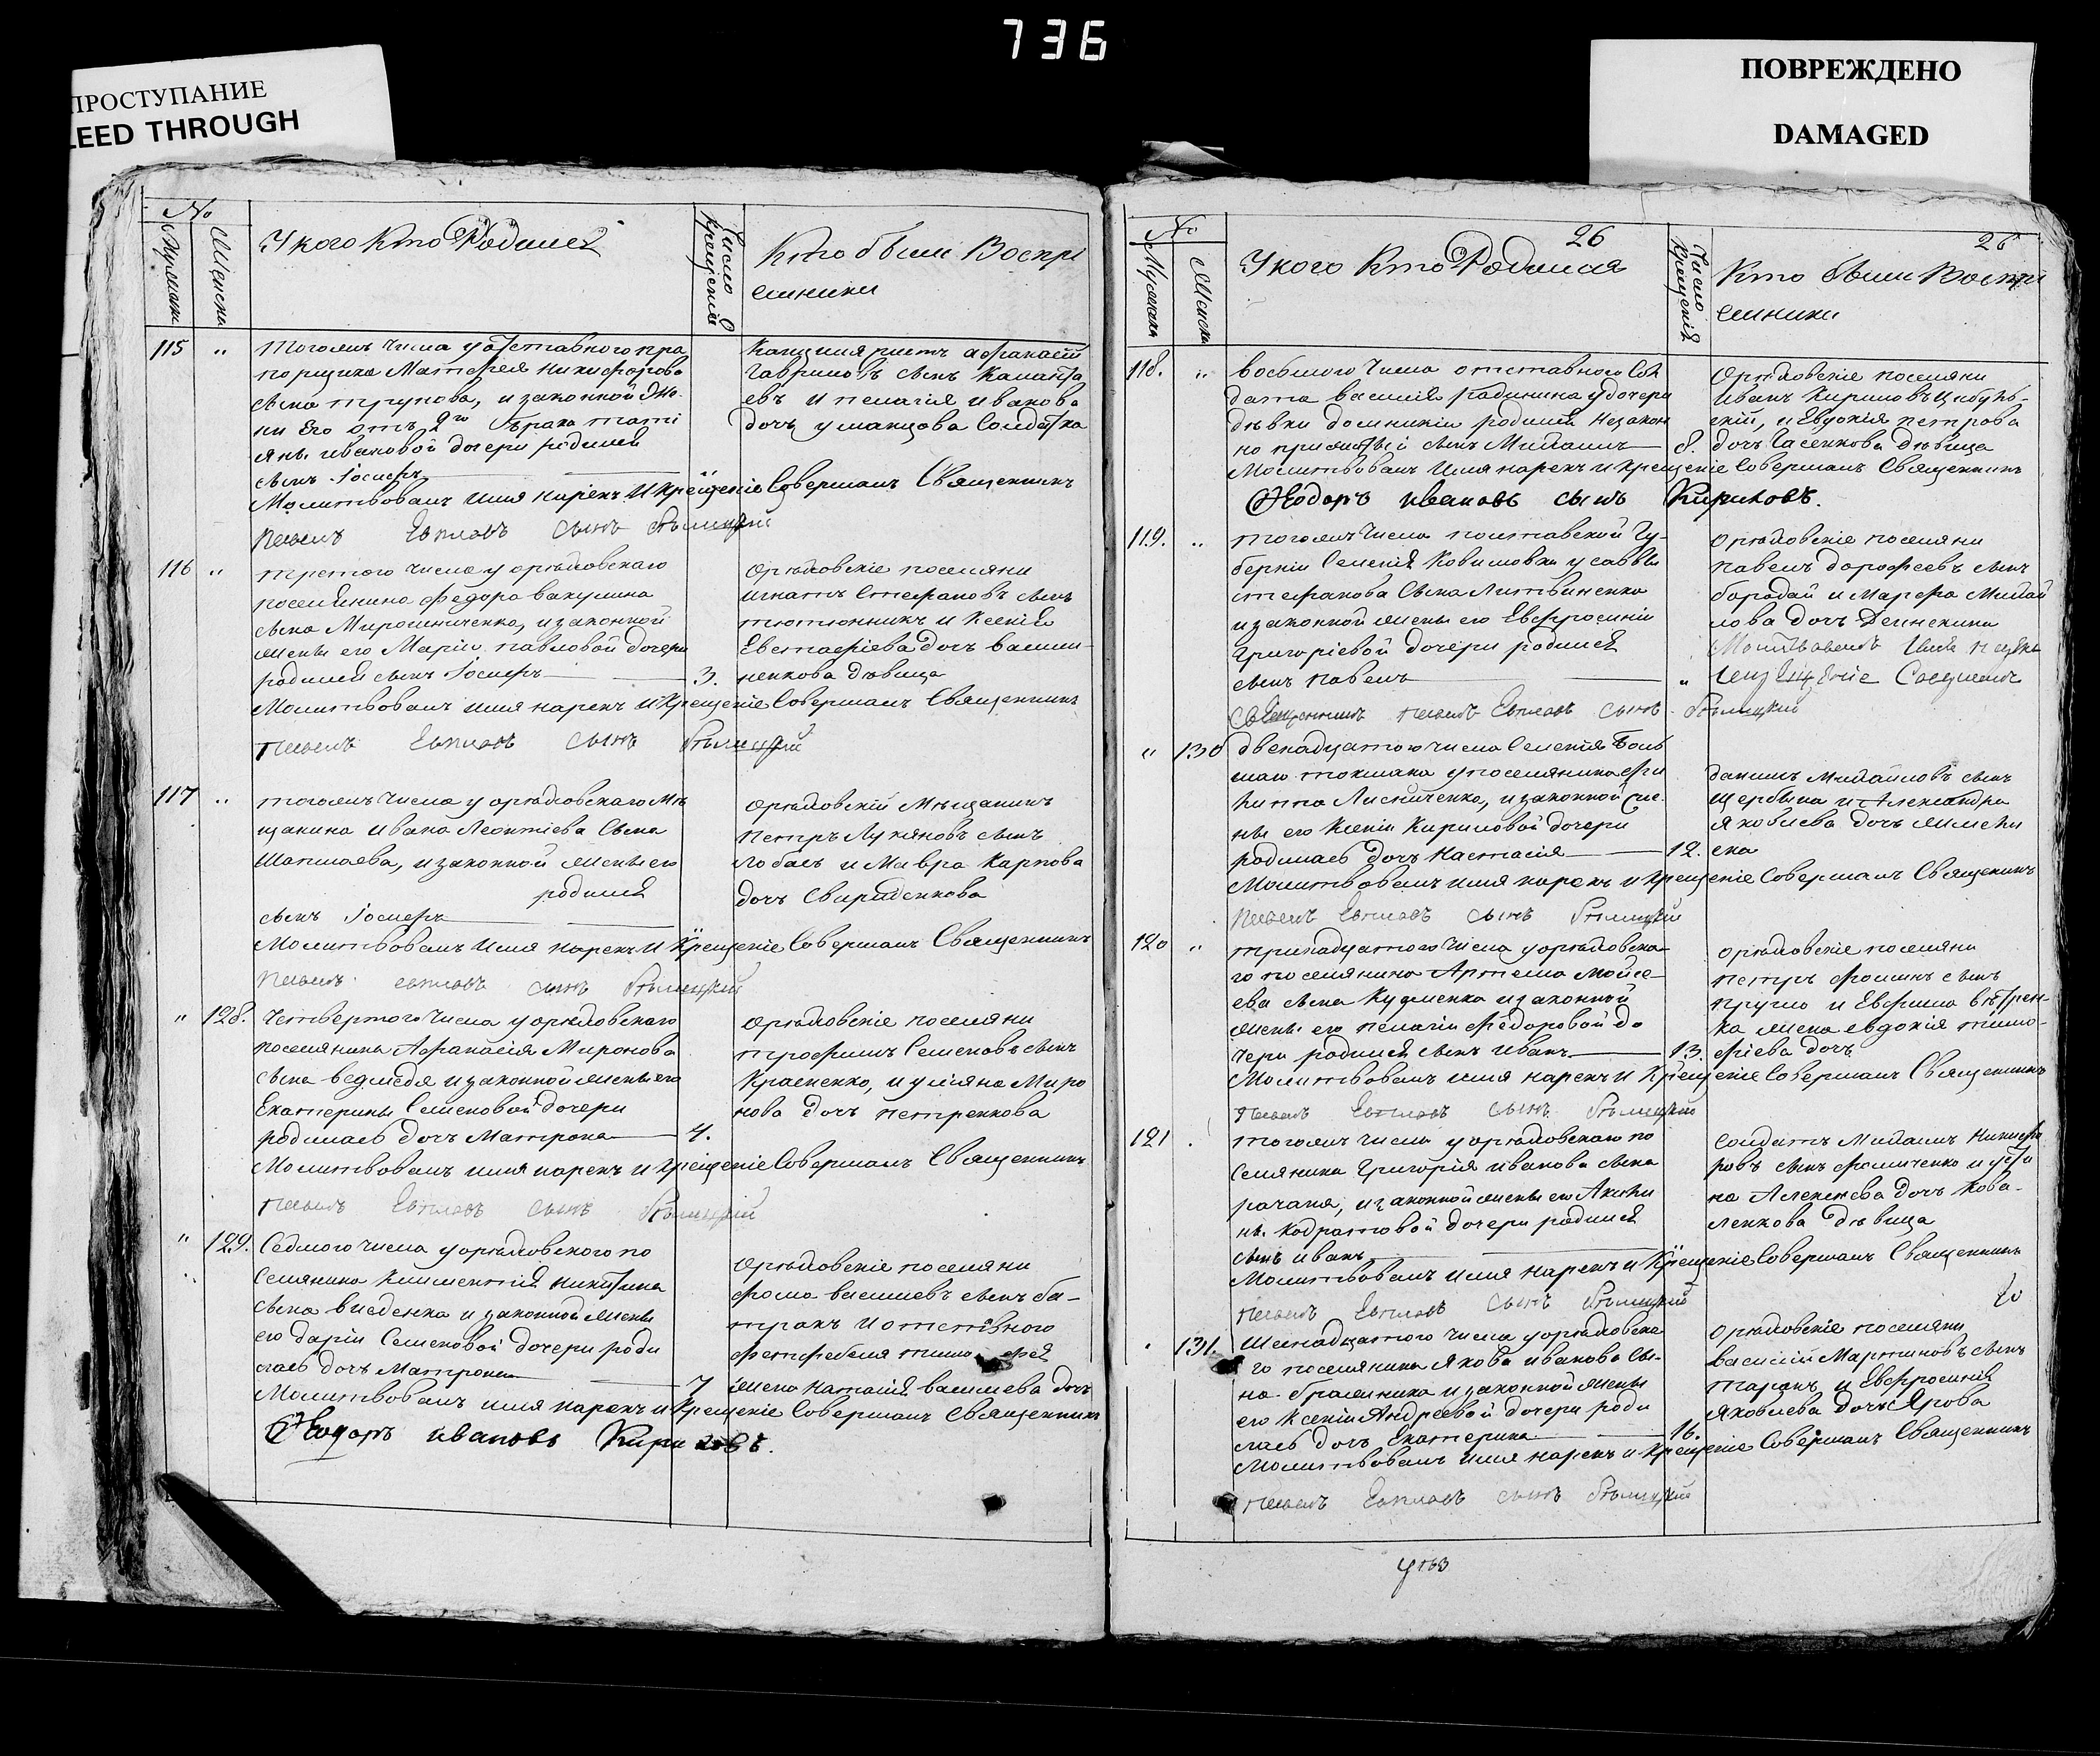 736
ПРОСТУПАНИЕ
LEED THROUGH
ПОВРЕЖДЕНО
DAMAGED
№
Мужеска
Женска
У кого Кто Родился
Число Крещенія
Кто были Воспрі
емники
115 "
тогожъ числа у отставного пра
порщика Матфея Никифорова
сына трунова, и законной Же
ны Его отъ 2го брака тати
яны ивановой дочери родился
сынъ Іосифъ
Канцеляристъ афанасій
Гавриловъ сынъ
евъ и пелагія иванова
дочь уманцова Солдатка
Молитвовалъ имя нарекъ И Крещеніе Совершалъ Священникъ
павелъ Евпловъ сынъ
116 "
третого числа у орѣховскаго
поселянина федора вакулина
сына Мирошниченка, и законной
жены его Маріи павловой дочери
родился сынъ Іосифъ 3.
Орѣховскіе поселяни
игнатъ Стефановъ сынъ
тютюнникъ и Ксенія
Евстафіева дочь васили-
ненкова дѣвица
Молитвовалъ имя нарекъ И Крещеніе Совершалъ Священникъ
павелъ Евпловъ сынъ
117 "
тогожъ числа у орѣховскаго Мѣ
щанина ивана Леонтіева сына
Шаптаева, и законной жены его
родился
сынъ Іосифъ
орѣховскій Мѣщанинъ
петръ Лукяновъ сынъ
лобасъ и Мавра Карпова
дочь Свириденкова
Молитвовалъ имя нарекъ И Крещеніе Совершалъ Священникъ
павелъ евпловъ сынъ
" 128.
Четвертого числа у орѣховскаго
поселянина Афанасія Миронова
сына ведмедя и законной жены его
Екатерины Семеновой дочери
родилась дочь Матрона 4.
Орѣховскіе поселяни
трофимъ Семеновъ сынъ
Красненко, и уліяна Миро
нова дочь петренкова
Молитвовалъ имя нарекъ и крещеніе Совершалъ Священникъ
павелъ Евпловъ сынъ
" 129.
Седмого числа у орѣховского по
Селянина Климентія никитина
сына висденка и законной жены
его даріи Семеновой дочери роди
лась дочъ Матрона 7
Орѣховскіе поселяни
фома васильевъ сынъ ба-
тракъ и отставного
фелтфебеля
жена наталія васильева дочъ
Молитвовалъ имя нарекъ и Крещеніе Совершалъ Священникъ
Ѳеодоръ ивановъ Кириловъ.
№
Мужеска
Женска
У кого Кто Родился
26
Число Крещенія
Кто были Воспри
емники
26
118. "
восьмого числа отставного Сол
дата василія радинина у дочери
дѣвки домникіи родился незакон
но прижитый сынъ Михаилъ 8.
Орѣховскіе поселяни
Иванъ Кириловъ Цибуль-
скій, и Евдокія петрова
дочь Часенкова дѣвица
Молитвовалъ имя нарекъ и крещеніе Совершалъ Священникъ
Ѳеодоръ ивановъ сынъ Кириловъ.
119. "
тогожъ числа полтавской Гу-
берніи Селенія Ковшовки у саввы
стефанова сына Литвиненка
и законной жены его Евфросиніи
Григоріевой дочери родился
сынъ павелъ "
орѣховскіе поселяни
павелъ дорофеевъ сынъ
бородай и Марфа Михай
лова дочъ Деинекина
Молитвовалъ имя нарекъ
и Крещеніе Совершалъ
Священникъ павелъ Евпловъ сынъ
" 130
двенадцатого числа Селенія боль
шаго токмака у поселянина фи
липпа Лисниченка, и законной же
ны его Ксеніи Кириловой дочери
родилась дочъ Настасія 12.
данилъ Михайловъ сынъ
щербина и Александра
Яковлева дочъ
ска
Молитвовалъ имя нарекъ и крещеніе Совершалъ Священникъ
павелъ Евпловъ сынъ
120 "
тринадцатого числа у орѣховска
го поселянина Артема Мойсе-
ева сына Кузменка и законной
жены его пелагіи федоровой до
чери родился сынъ иванъ 13.
орѣховскіе поселяни
петръ фоминъ сынъ
кругло и Евфима
ка жена евдокія тимо-
фіева дочъ
Молитвовалъ имя нарекъ И Крещеніе Совершалъ Священникъ
павелъ Евпловъ сынъ
121
тогожъ числа у орѣховскаго по
селянина Григорія иванова сына
рачана, и законной жены его Акили
ны Кодратовой дочери родился
сынъ иванъ
солдатъ Михаилъ Никифо
ровъ сынъ фомиченко и усти
на Алексеева дочь Кова-
ленкова дѣвица
Молитвовалъ имя нарекъ и Крещеніе Совершалъ Священникъ
павелъ Евпловъ сынъ
131
Шестнадцатого числа у орѣховска
го поселянина Якова иванова сы-
на бражника и законной жены
его Ксеніи Андреевой дочери роди
лась дочъ Екатерина 16.
Орѣховскіе поселяни
василій Мартиновъ сынъ
таранъ и Евфросинія
Яковлева дочъ Ярова
Молитвовалъ имя нарекъ и Крещеніе Совершалъ Священникъ
павелъ Евпловъ сынъ